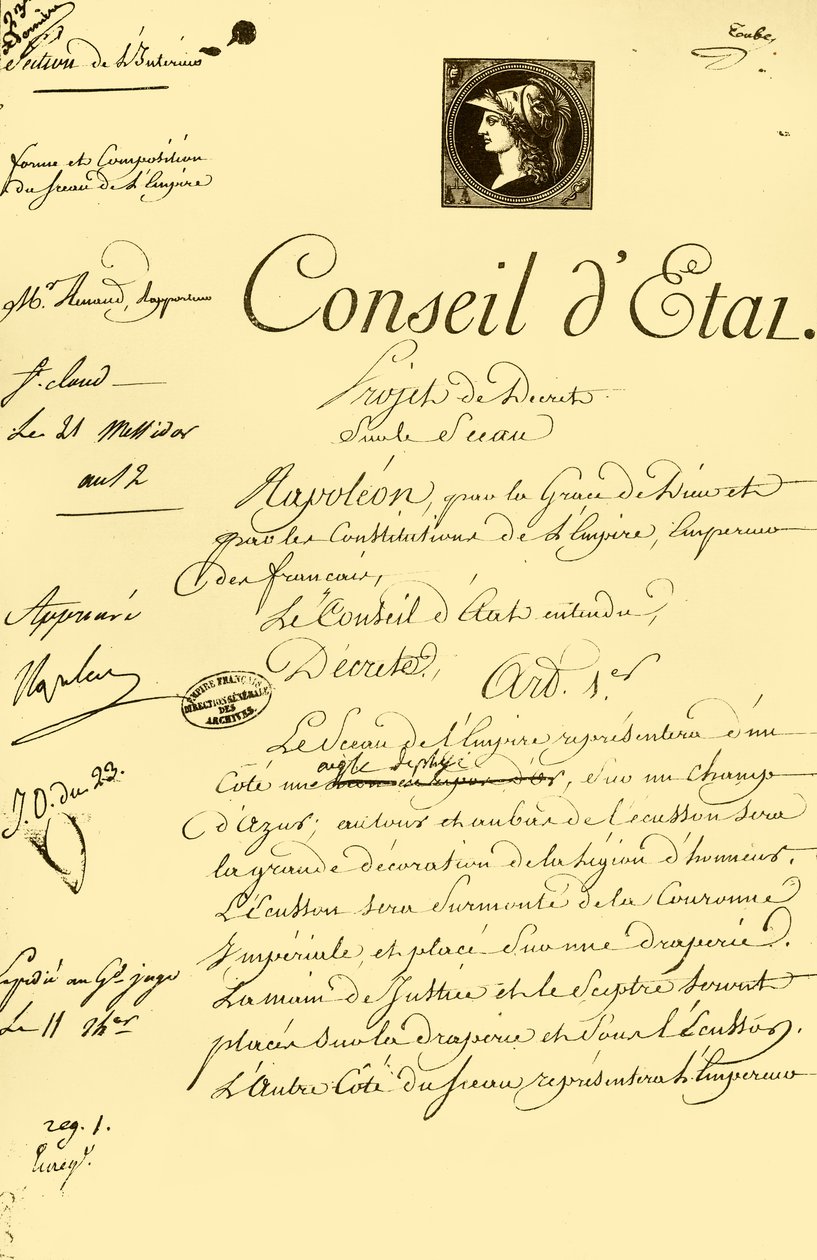 Section de l'Intérieur
forme et Composition
du sceau de l'Empire
Mr. Renaud, Rapporteur
St. cloud
Le 21 Messidor
an 12
Approuvé
J.O. du 23.
Expédié au Gd. juge
Le 11 Xber
reg. 1.
Conseil d'Etat.
Projet de Décret
Sur le Sceau
Napoléon, par la Grace de Dieu et
par les Constitutions de l'Empire, Empereur
des français,
Le Conseil d'État entendu,
Décrete,
EMPIRE FRANÇAIS
DIRECTION GÉNÉRALE
DES
ARCHIVES.
Art. 1.er
Le Sceau de l'Empire représentera d'un
aigle deployé
Côté un d'or, sur un champ
d'Azur; autour et au bas de l'écusson sera
la grande décoration de la Légion d'honneur.
L'Écusson sera Surmonté de la Couronne
Impériale, et placé Sur une draperie.
La main de Justice et le Sceptre seront
placés Sur la draperie et Sous l'Écusson.
L'Autre Côté du sceau représentera l'Empereur